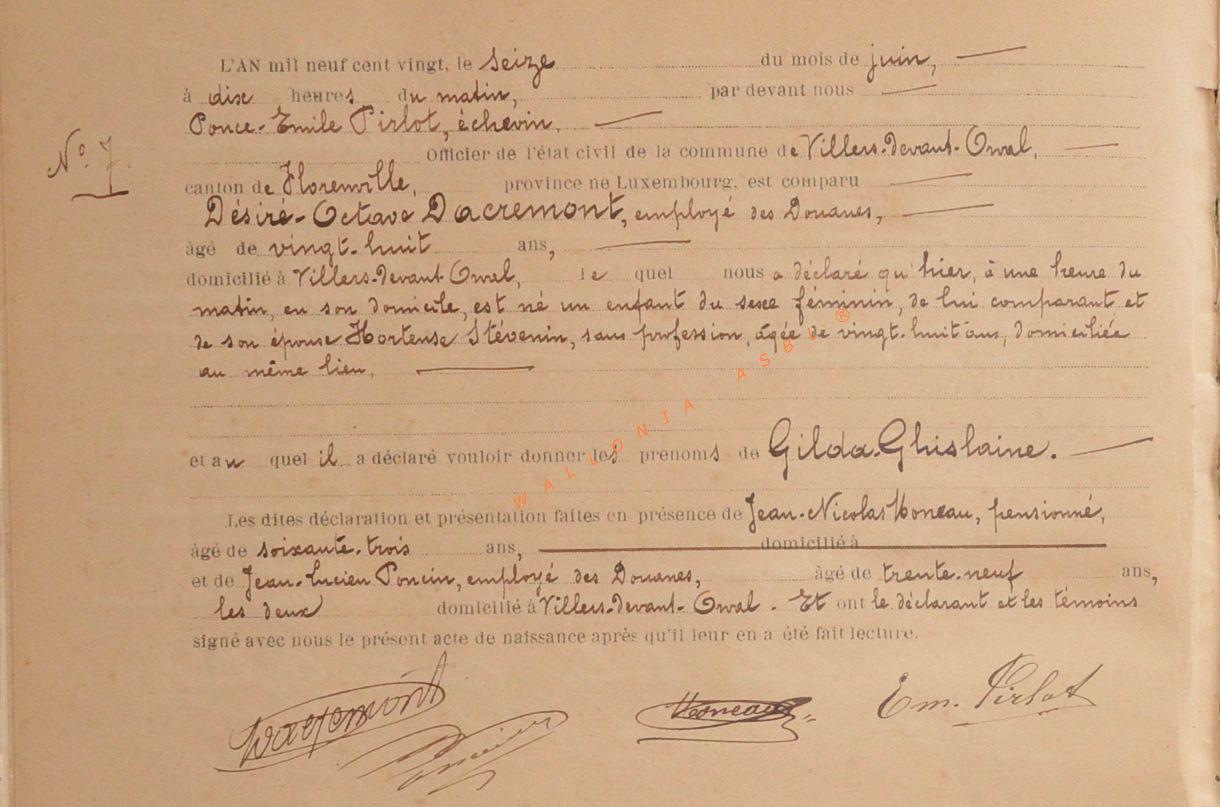 L'AN mil neuf cent vingt, le seize du mois de juin,
à dix heures du matin, par devant nous
Ponce-Emile Pirlot, échevin,
N° 7.
Officier de l'état civil de la commune de Villers-devant-Orval,
canton de Florenville, province ne Luxembourg, est comparu
Désiré-Octave Dacremont, employé des Douanes,
âgé de vingt-huit ans,
domicilié à Villers-devant-Orval, le quel nous a déclaré qu'hier, à une heure du
matin, en son domicile, est né un enfant du sexe féminin, de lui comparant et
de son épouse Hortense Stévenin, sans profession, âgée de vingt-huit ans, domiciliée
au même lieu.
et au quel il a déclaré vouloir donner les prénoms de Gilda-Ghislaine.
Les dites déclaration et présentation faites en présence de Jean-Nicolas Moneau, pensionné,
âgé de soixante-trois ans, domicilié à
et de Jean-Lucien Poncin, employé des Douanes, âgé de trente-neuf ans,
les deux domicilié à Villers-devant-Orval. Et ont le déclarant et les témoins
signé avec nous le présent acte de naissance après qu'il leur en a été fait lecture.
Dacremont Poncin Moneau Em. Pirlot
WALLONIA ASBL ®